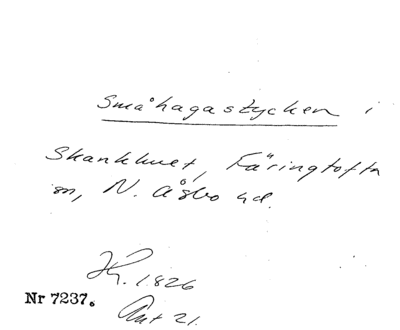 Småhagastycken i
Skankhuet, Färingtofta
sn, N. Åsbo hd.
Kh. 1826
Nr 7237.
Ant 21.